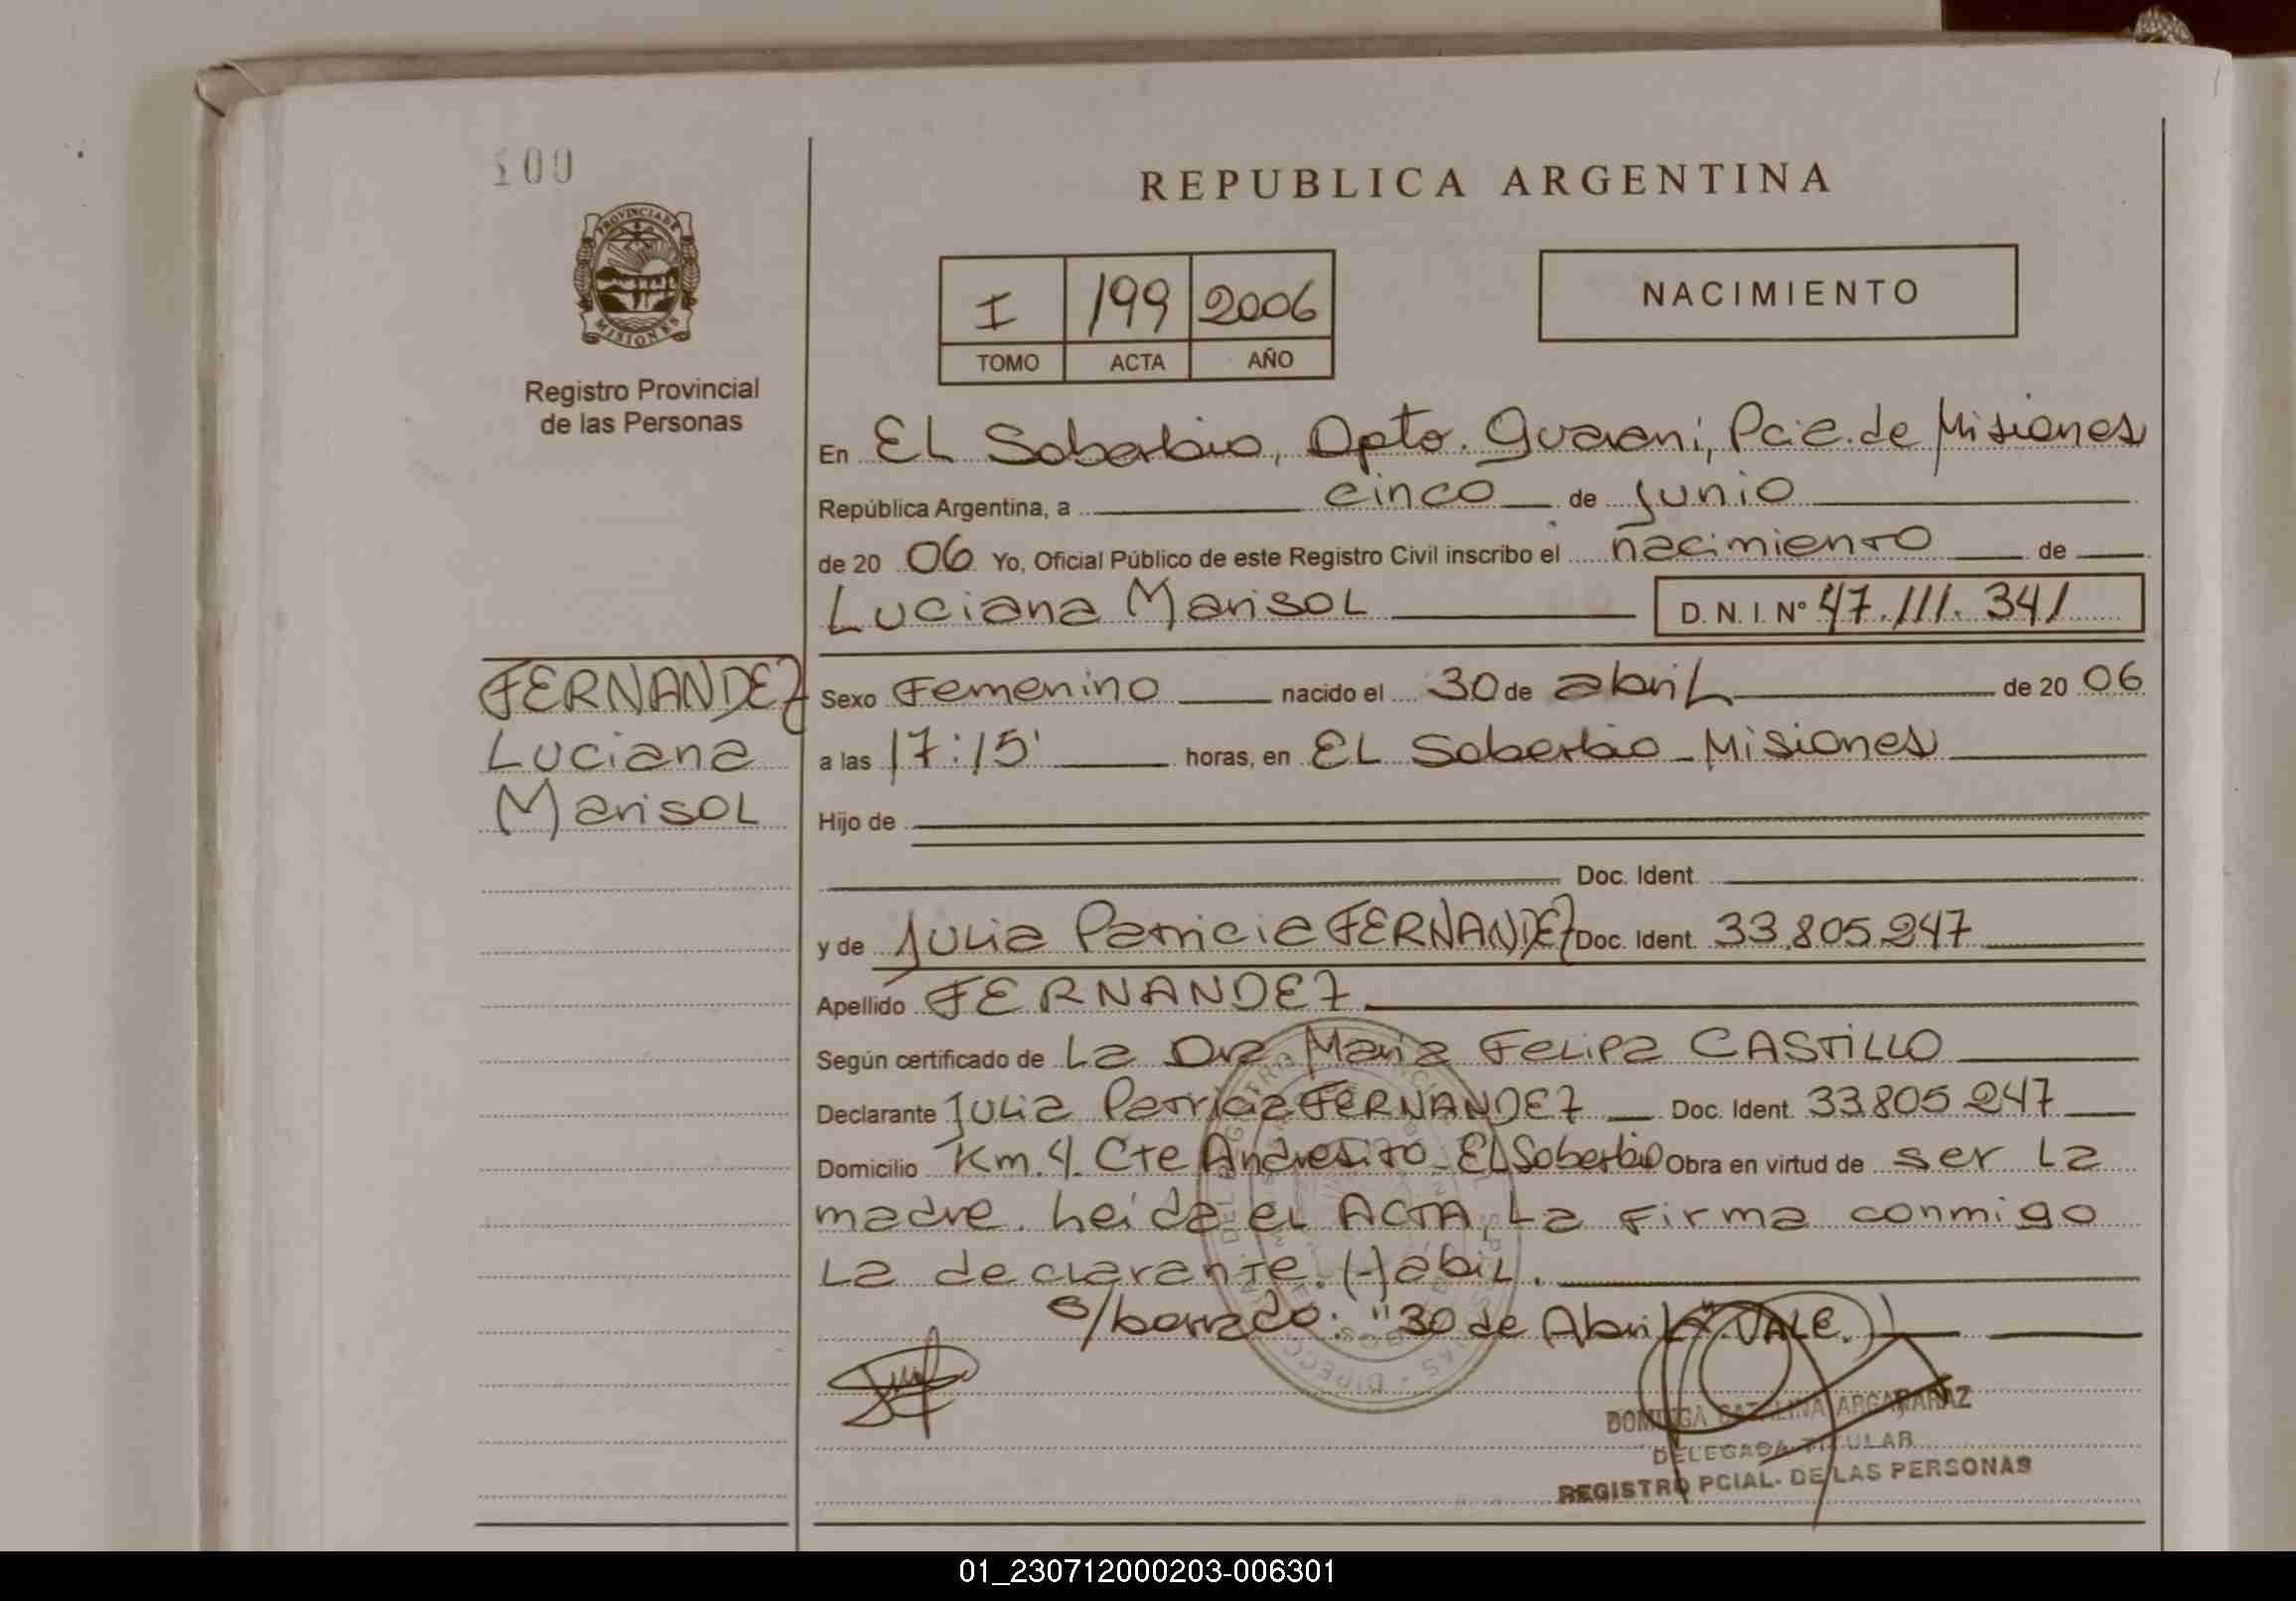 100
PROVINCIA DE
MISIONES
Registro Provincial
de las Personas
REPUBLICA ARGENTINA
I 199 2006
TOMO ACTA AÑO
NACIMIENTO
En EL Soberbio, Dpto. Guarani, Pcia. de Misiones
República Argentina, a cinco de Junio
de 20 06 Yo, Oficial Público de este Registro Civil inscribo el nacimiento de
Luciana Marisol D. N. I. Nº 47.111.341
FERNANDEZ
Luciana
Marisol
Sexo Femenino nacido el 30 de abril de 20 06
a las 17:15' horas, en EL Soberbio - Misiones
Hijo de
Doc. Ident.
y de Julia Patricia FERNANDEZ Doc. Ident. 33.805.247
Apellido FERNANDEZ
Según certificado de La Dra. Maria Felipa CASTILLO
Declarante Julia Patricia FERNANDEZ Doc. Ident. 33.805.247
Domicilio Km. 4. Cte Andresito - EL Soberbio Obra en virtud de ser La
madre. Leida el ACTA, La firma conmigo
La declarante. (-)abil.
s/borrado: "30 de Abril" VALE.)
DOMINGA CATALINA ARGARARAZ
DELEGADA TITULAR
REGISTRO PCIAL. DE LAS PERSONAS
01_230712000203-006301